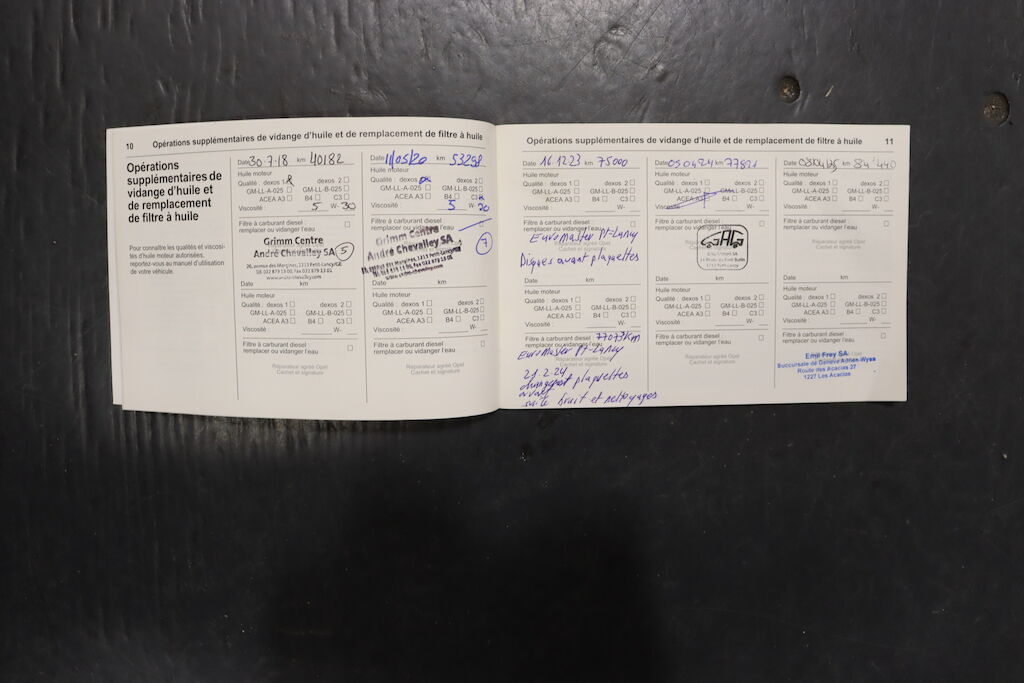 10 Opérations supplémentaires de vidange d'huile et de remplacement de filtre à huile
Opérations
supplémentaires de
vidange d'huile et
de remplacement
de filtre à huile
Pour connaître les qualités et viscosi-
tés d'huile moteur autorisées,
reportez-vous au manuel d'utilisation
de votre véhicule.
Date 30.7.18 km 40182
Huile moteur
Qualité : dexos 1 dexos 2
GM-LL-A-025 GM-LL-B-025
ACEA A3 B4 C3
Viscosité : 5 W- 30
Filtre à carburant diesel :
remplacer ou vidanger l'eau
Grimm Centre
André Chevalley SA
5
Date km
Huile moteur
Qualité : dexos 1 dexos 2
GM-LL-A-025 GM-LL-B-025
ACEA A3 B4 C3
Viscosité : W-
Filtre à carburant diesel :
remplacer ou vidanger l'eau
Réparateur agréé Opel
Cachet et signature
Date 11/05/20 km 53298
Huile moteur
Qualité : dexos 1 dexos 2
GM-LL-A-025 GM-LL-B-025
ACEA A3 B4 C3
Viscosité : 5 W- 20
Filtre à carburant diesel :
remplacer ou vidanger l'eau
Grimm Centre
André Chevalley SA
7
Date km
Huile moteur
Qualité : dexos 1 dexos 2
GM-LL-A-025 GM-LL-B-025
ACEA A3 B4 C3
Viscosité : W-
Filtre à carburant diesel :
remplacer ou vidanger l'eau
Réparateur agréé Opel
Cachet et signature
Opérations supplémentaires de vidange d'huile et de remplacement de filtre à huile 11
Date 16.12.23 km 75000
Huile moteur
Qualité : dexos 1 dexos 2
GM-LL-A-025 GM-LL-B-025
ACEA A3 B4 C3
Viscosité : W-
Filtre à carburant diesel :
remplacer ou vidanger l'eau
EuroMaster Pt-Lancy
Disques avant plaquettes
Date km
Huile moteur
Qualité : dexos 1 dexos 2
GM-LL-A-025 GM-LL-B-025
ACEA A3 B4 C3
Viscosité : W-
Filtre à carburant diesel : 77073km
remplacer ou vidanger l'eau
EuroMaster Pt-Lancy
Réparateur agréé Opel
Cachet et signature
21.2.24
changement plaquettes
avant
suite bruit et nettoyages
Date 05.04.24 km
Huile moteur
Qualité : dexos 1 dexos 2
GM-LL-A-025
ACEA A3 B4 C3
Viscosité : W-
Filtre à carburant diesel :
remplacer ou vidanger l'eau
Date km
Huile moteur
Qualité : dexos 1 dexos 2
GM-LL-A-025 GM-LL-B-025
ACEA A3 B4 C3
Viscosité : W-
Filtre à carburant diesel :
remplacer ou vidanger l'eau
Réparateur agréé Opel
Cachet et signature
Date 03/04/25 km 84'440
Huile moteur
Qualité : dexos 1 dexos 2
GM-LL-A-025 GM-LL-B-025
ACEA A3 B4 C3
Viscosité : W-
Filtre à carburant diesel :
remplacer ou vidanger l'eau
Réparateur agréé Opel
Cachet et signature
Date km
Huile moteur
Qualité : dexos 1 dexos 2
GM-LL-A-025 GM-LL-B-025
ACEA A3 B4 C3
Viscosité : W-
Filtre à carburant diesel :
remplacer ou vidanger l'eau
Emil Frey SA
Succursale de Genève Adrien-Wyss
Route des Acacias 27
1227 Les Acacias